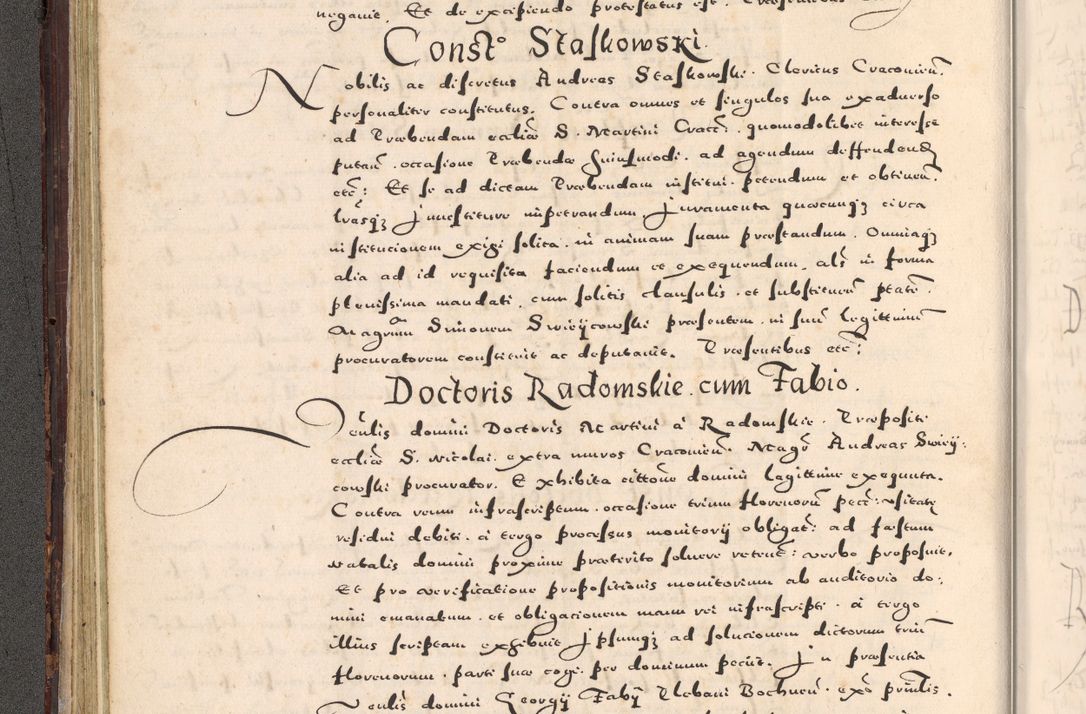 negauit. Et de excipiendo protestatus est. Praesentibus
Const° Staskowski.
Nobilis ac discretus Andreas Staskowski. Clericus Cracouien̄.
personaliter constitutus. Contra omnes et singulos sua exaduerso
ad Praebendam eccliae S. Martini Cracc̄: quomodolibet interesse
putan̄. occasione Praebendae huiusmodi. ad agendum deffendend̄
etc̄: Et se ad dictam Praebendam institui. petendum et obtinen̄.
l̄rasq3 Inuestiturae impetrandum. Juramenta quaecunq3 circa
institucionem exigi solita. in animam suam praestandum. Omniaq3
alia ad id requisita faciendum et exequendum. als̄ in forma
plenissima mandati. cum solitis clausulis. et substituen̄ ptate.
Magr̄um Simonem Swieijcowski praesentem. in suū legittimū
procuratorem constituit ac deputauit. Praesentibus etc̄:
Doctoris Radomskie. cum Fabio.
Ven̄lis domini Doctoris Martini a Radomskie. Praepositi
eccliae S. Nicolai. extra muros Cracouien̄. Magr̄ Andreas Swieij:
cowski procurator. Exhibita cittōne domini lagittime exequuta.
Contra reum infrascriptum. occasione trium florenorū pecc̄: usitatę
residui debiti. a tergo processus monitorij obligat̄: ad festum
natalis domini proxime praeterito soluere reten̄t: verbo proposuit.
Et pro verificatione propositionis monitorium ab auditorio do:
mini emanatum. et obligacionem manu rei infrascripti. a tergo
illius scriptam exhibuit Ipsumq3 ad solucionem dictorum triū
florenorum. parti suae cogi. per dominum petiit. In praesentia
Ven̄lis domini Georgij Fabij Plebani Bochnen̄. exō prin̄lis.